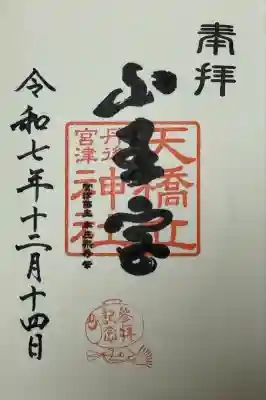 奉拝
山王宮
天橋立
丹後
宮津
神社
令和七年十二月十四日
参拝
記念